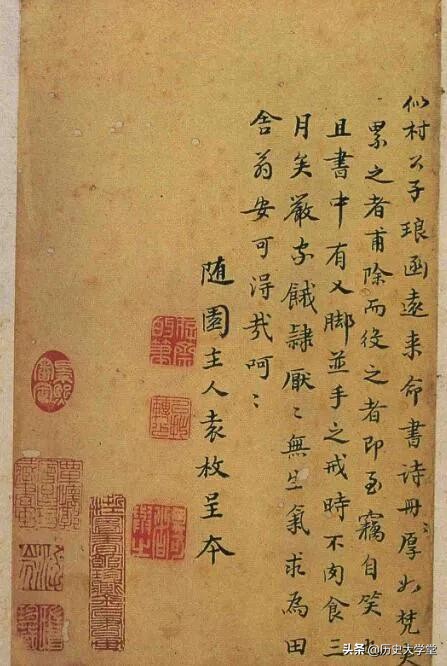 似村公子琅函遠来命書诗册厚如梵
累之者甫除而役之者即至竊自笑
且書中有叉脚並手之戒時不肉食三
月矣嚴家餓隷厭〻無生氣求為田
舍翁安可得哉呵〻
随園主人袁枚呈夲
头条 @历史大学堂